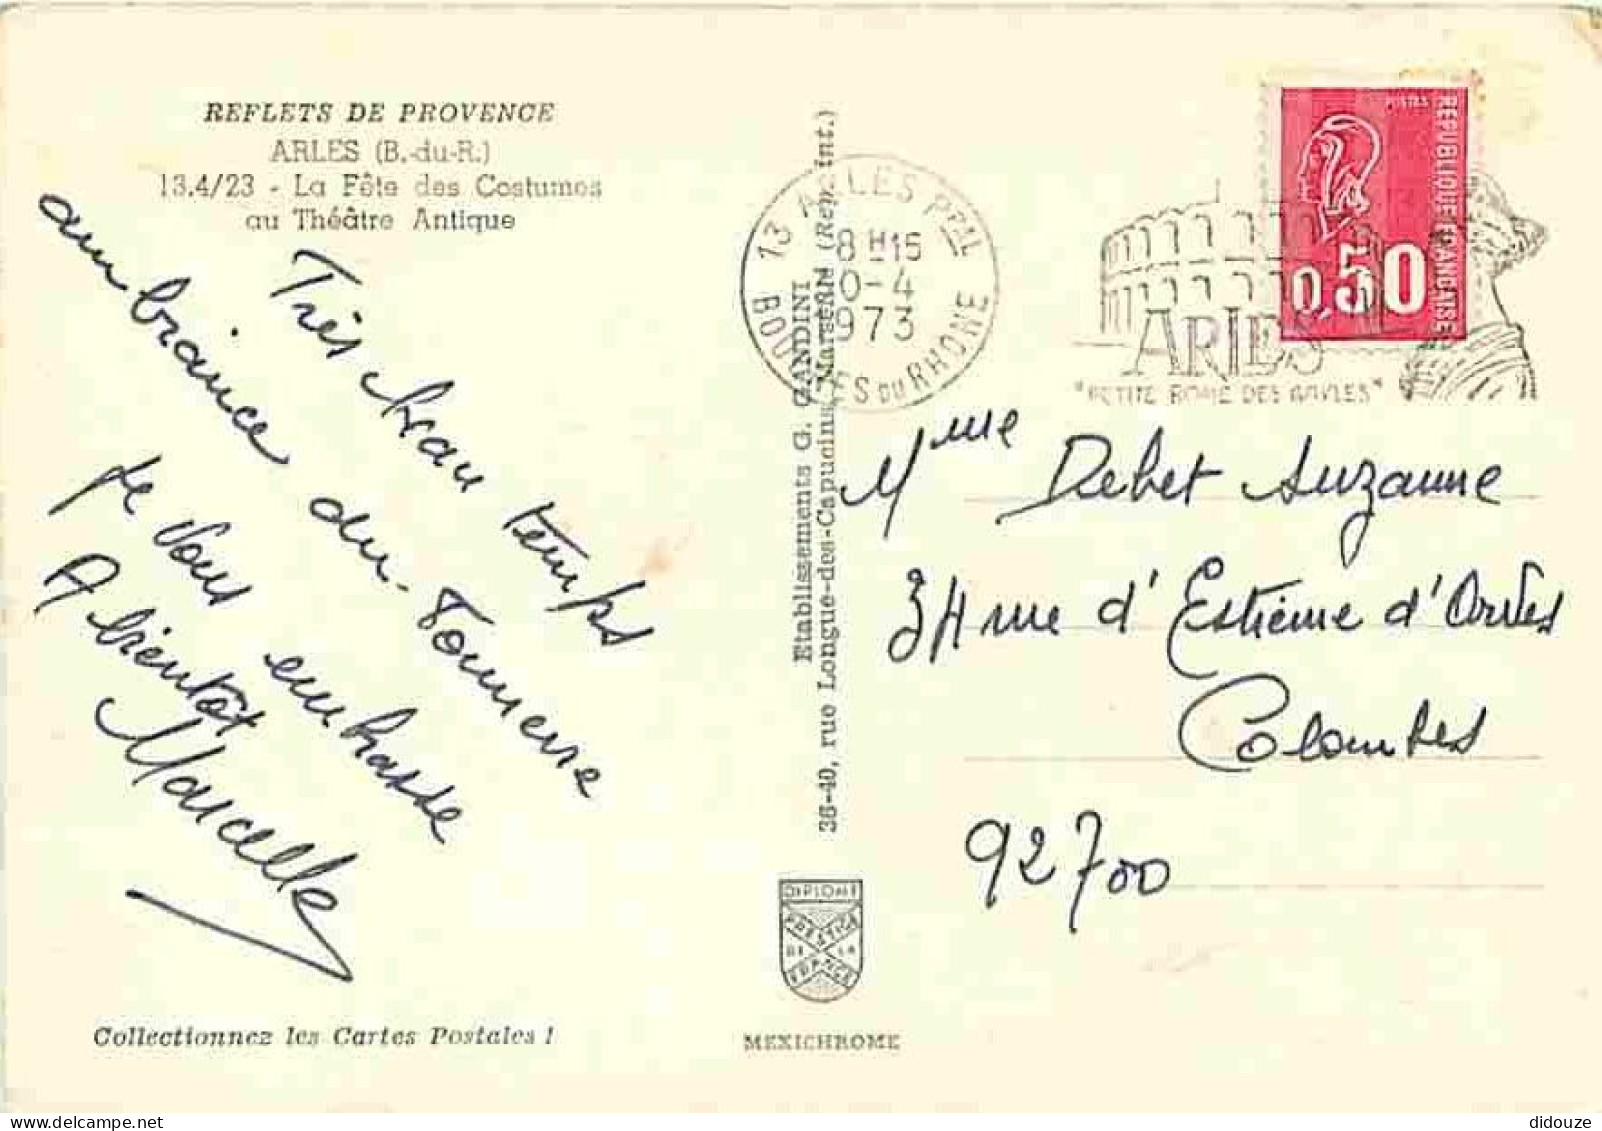 REFLETS DE PROVENCE
ARLES (B.-du-R.)
13.4/23 - La Fête des Costumes
au Théâtre Antique
Très beau temps
ambiance du Tonnerre
Je vous embrasse
A bientôt
Marcelle
Collectionnez les Cartes Postales !
Etablissements G. GANDINI
36-40, rue Longue-des-Capucins, Marseille (Rep. int.)
DIPLOME
PRESTIGE
DE LA
FRANCE
MEXICHROME
13 ARLES PPAL
8H15
0-4
1973
BOUCHES DU RHONE
ARLES
"PETITE ROME DES GAULES"
POSTES
REPUBLIQUE FRANÇAISE
0,50
Mme Debet Suzanne
34 rue d'Estienne d'Orves
Colombes
92700
didouze